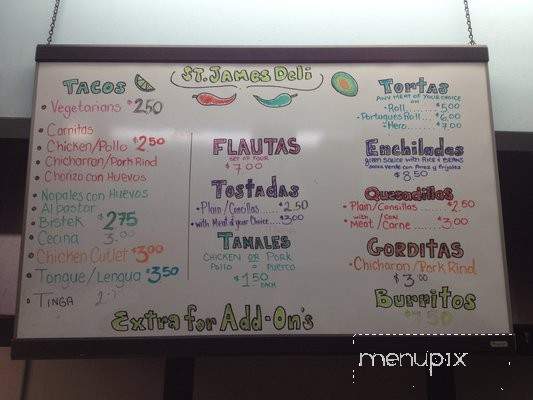 St. James Deli
Tacos
Vegetarians $2.50
Carnitas
Chicken/Pollo $2.50
Chicharron/Pork Rind
Chorizo con Huevos
Nopales con Huevos
Al pastor
Bistek $2.75
Cecina 3.00
Chicken Cutlet $3.00
Tongue/Lengua $3.50
Tinga
FLAUTAS
SET OF FOUR
$7.00
Tostadas
Plain/Sencillas $2.50
with Meat of your Choice $3.00
TAMALES
CHICKEN OR Pork
Pollo o Puerco
$1.50
EACH
Tortas
ANY MEAT OF YOUR CHOICE
on
Roll $5.00
Portugues Roll $6.00
Hero $7.00
Enchiladas
green sauce with Rice & BEANS
salsa verde con Arroz y Frijoles
$8.50
Quesadillas
Plain/Sencillas $2.50
with con
Meat/Carne $3.00
GORDITAS
Chicharon/Pork Rind
$3.00
Burritos
$7.50
Extra for Add-On's
menupix